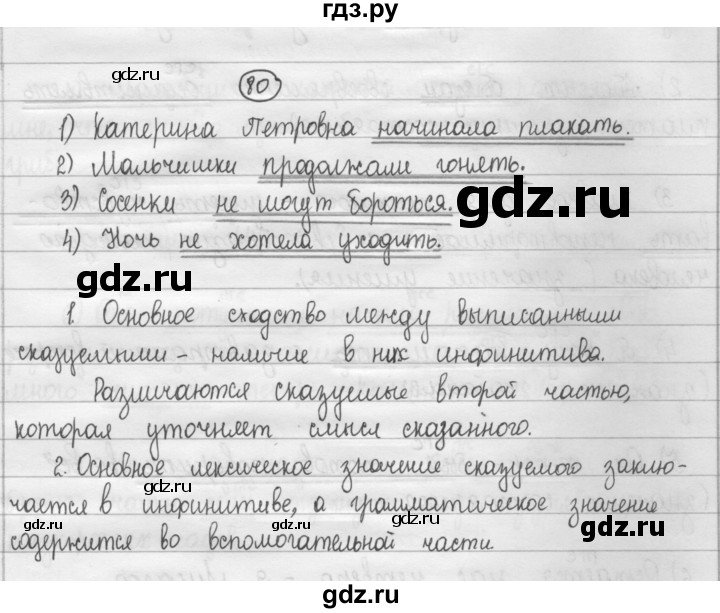 гдз.ру
gdz.ru
80
1) Катерина Петровна начинала плакать.
2) Мальчишки продолжали гонять.
gdz.ru
3) Сосенки не могут бороться.
gdz.ru
4) Ночь не хотела уходить.
gdz.ru
1. Основное сходство между выписанными
сказуемыми - наличие в них инфинитива.
gdz.ru
gdz.ru
Различаются сказуемые второй частью,
которая уточняет смысл сказанного.
gdz.ru
2. Основное лексическое значение сказуемого заклю-
gdz.ru
чается в инфинитиве, а грамматическое значение
gdz.ru
gdz.ru
содержится во вспомогательной части
gdz.ru